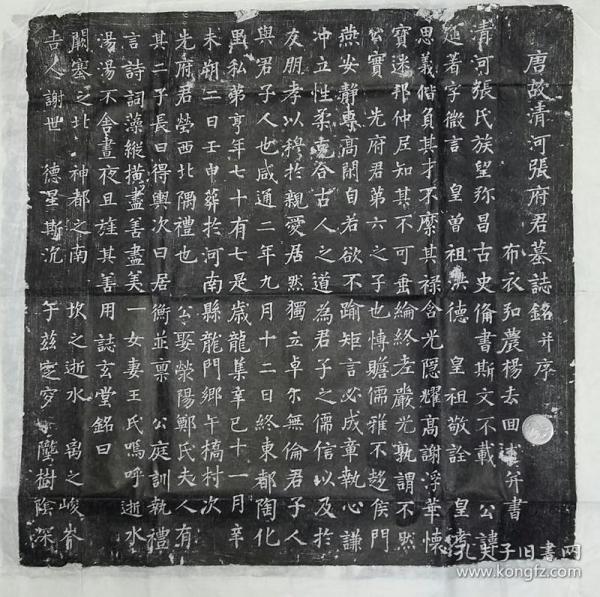 唐故清河張府君墓誌銘并序
布衣弘農楊去回述并書
清河張氏族望弥昌古史俻書斯文不載 公諱
延著字微言 皇曾祖洪德 皇祖敬詮 皇考
思義偕負其才不縻其祿含光隱耀高謝浮華懷
寶迷邦仲尼知其不可垂綸終老嚴光孰謂不然
公實 先府君第六之子也博贍儒雅不趍侯門
燕安靜專高閑自若欲不踰矩言必成章執心謙
冲立性柔克合古人之道為君子之儒信以及於
友朋孝以穆於親愛居然獨立卓尓無倫君子人
與君子人也咸通二年九月十二日終東都陶化
里私第享年七十有七是歲龍集辛巳十一月辛
未朔二日壬申葬於河南縣龍門鄉午橋村次
先府君塋西北隅禮也 公娶滎陽鄭氏夫人有
其二子長曰得輿次曰居衡並禀 公庭訓執禮
言詩詞藻縱橫盡善盡美一女妻王氏嗚呼逝水
湯湯不舍晝夜且旌其善用誌玄堂銘曰
闕塞之北 神都之南 坎之逝水 嵩之峻岑
吉人謝世 德星斯沉 于兹窆穸 壟樹陰深
孔夫子旧書网
www.kongfz.com